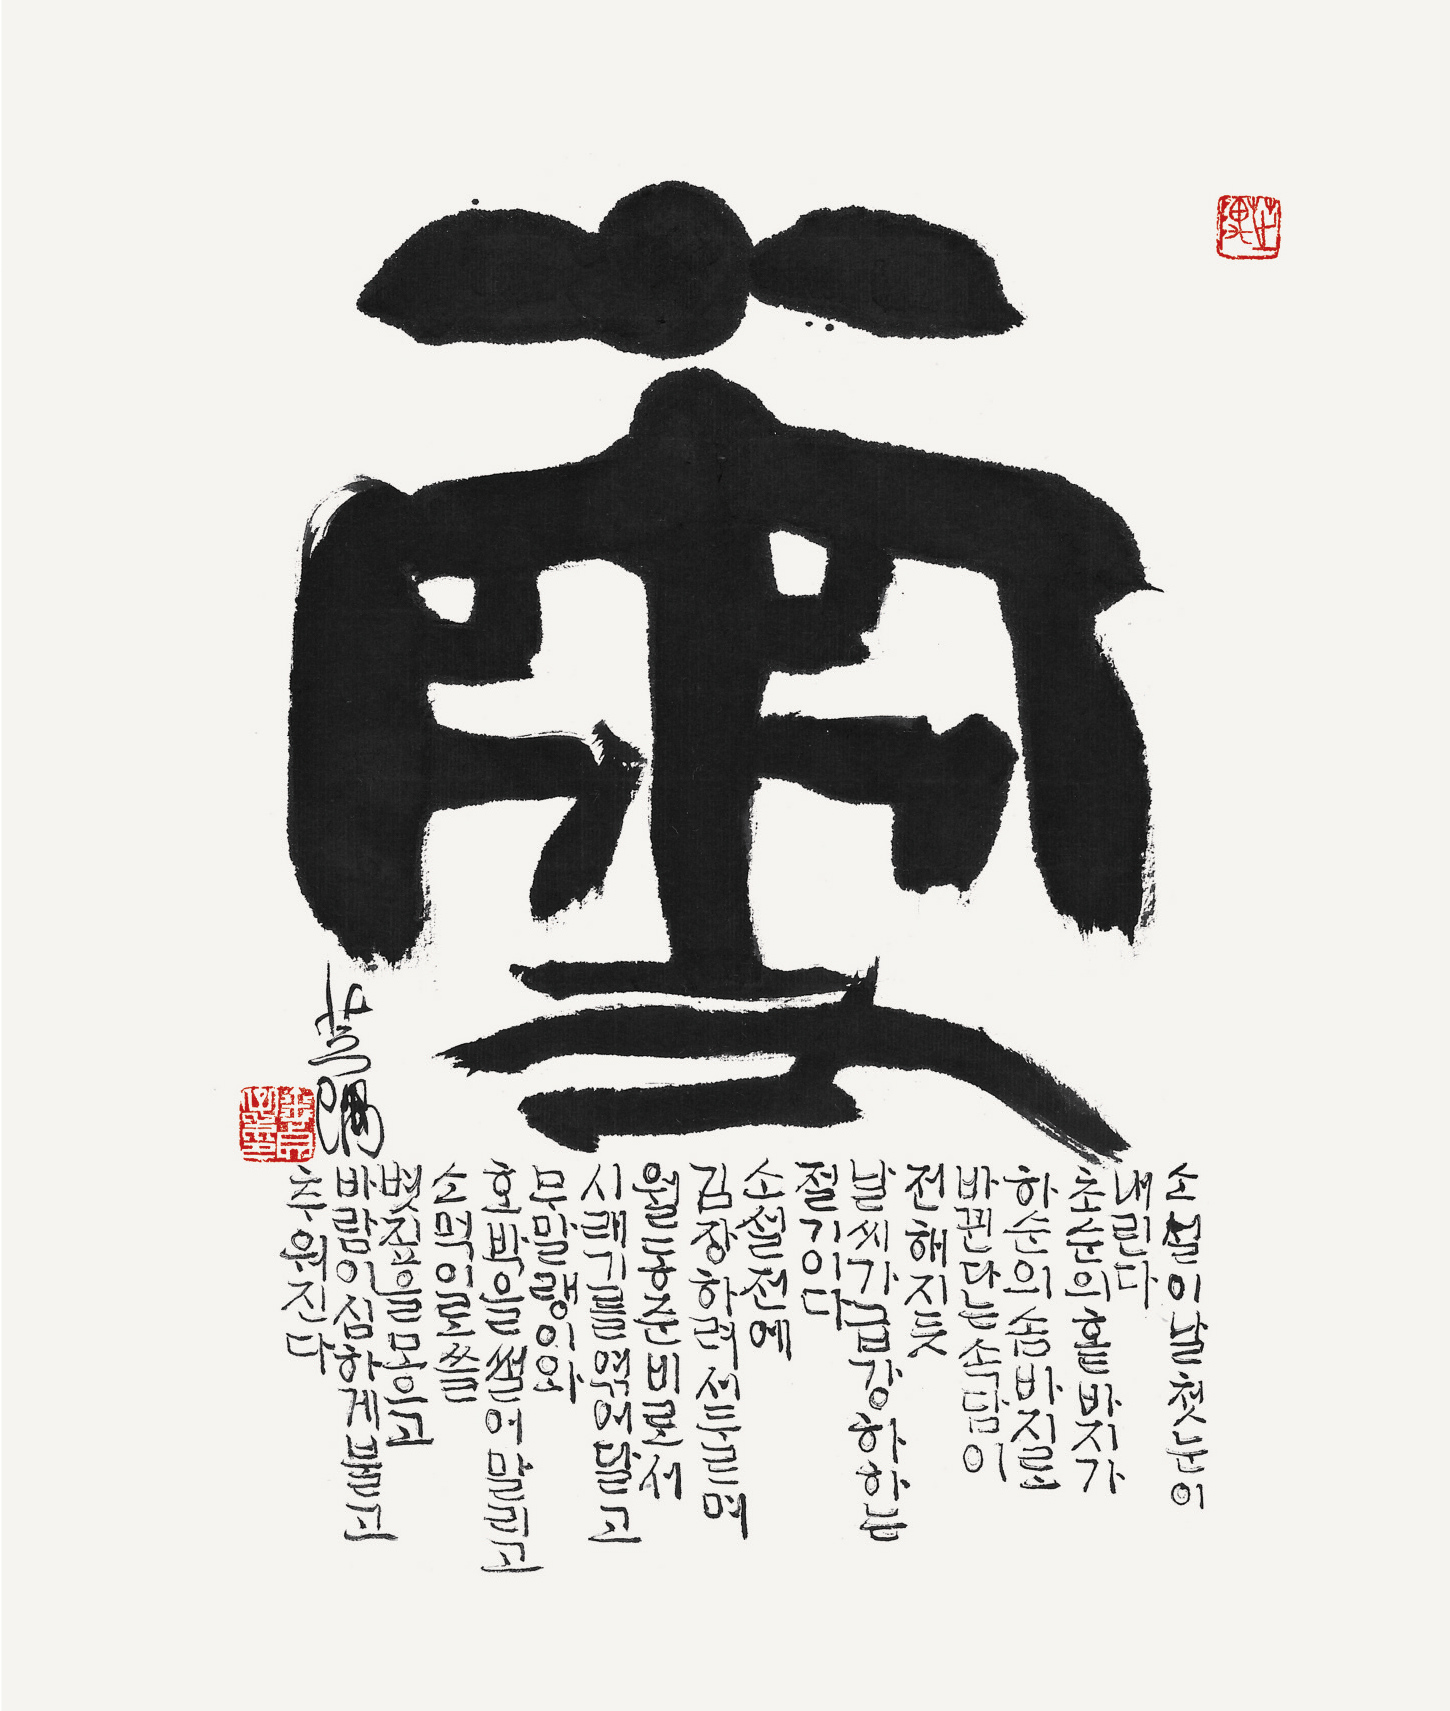 雪
소설이날첫눈이
내린다
초순의홑바지가
하순의솜바지로
바뀐다는속담이
전해지듯
날씨가급강하하는
절기이다
소설전에
김장하려서두르며
월동준비로서
시래기를엮어달고
무말랭이와
호박을썰어말리고
소먹이로쓸
볏짚을모으고
바람이심하게불고
추워진다